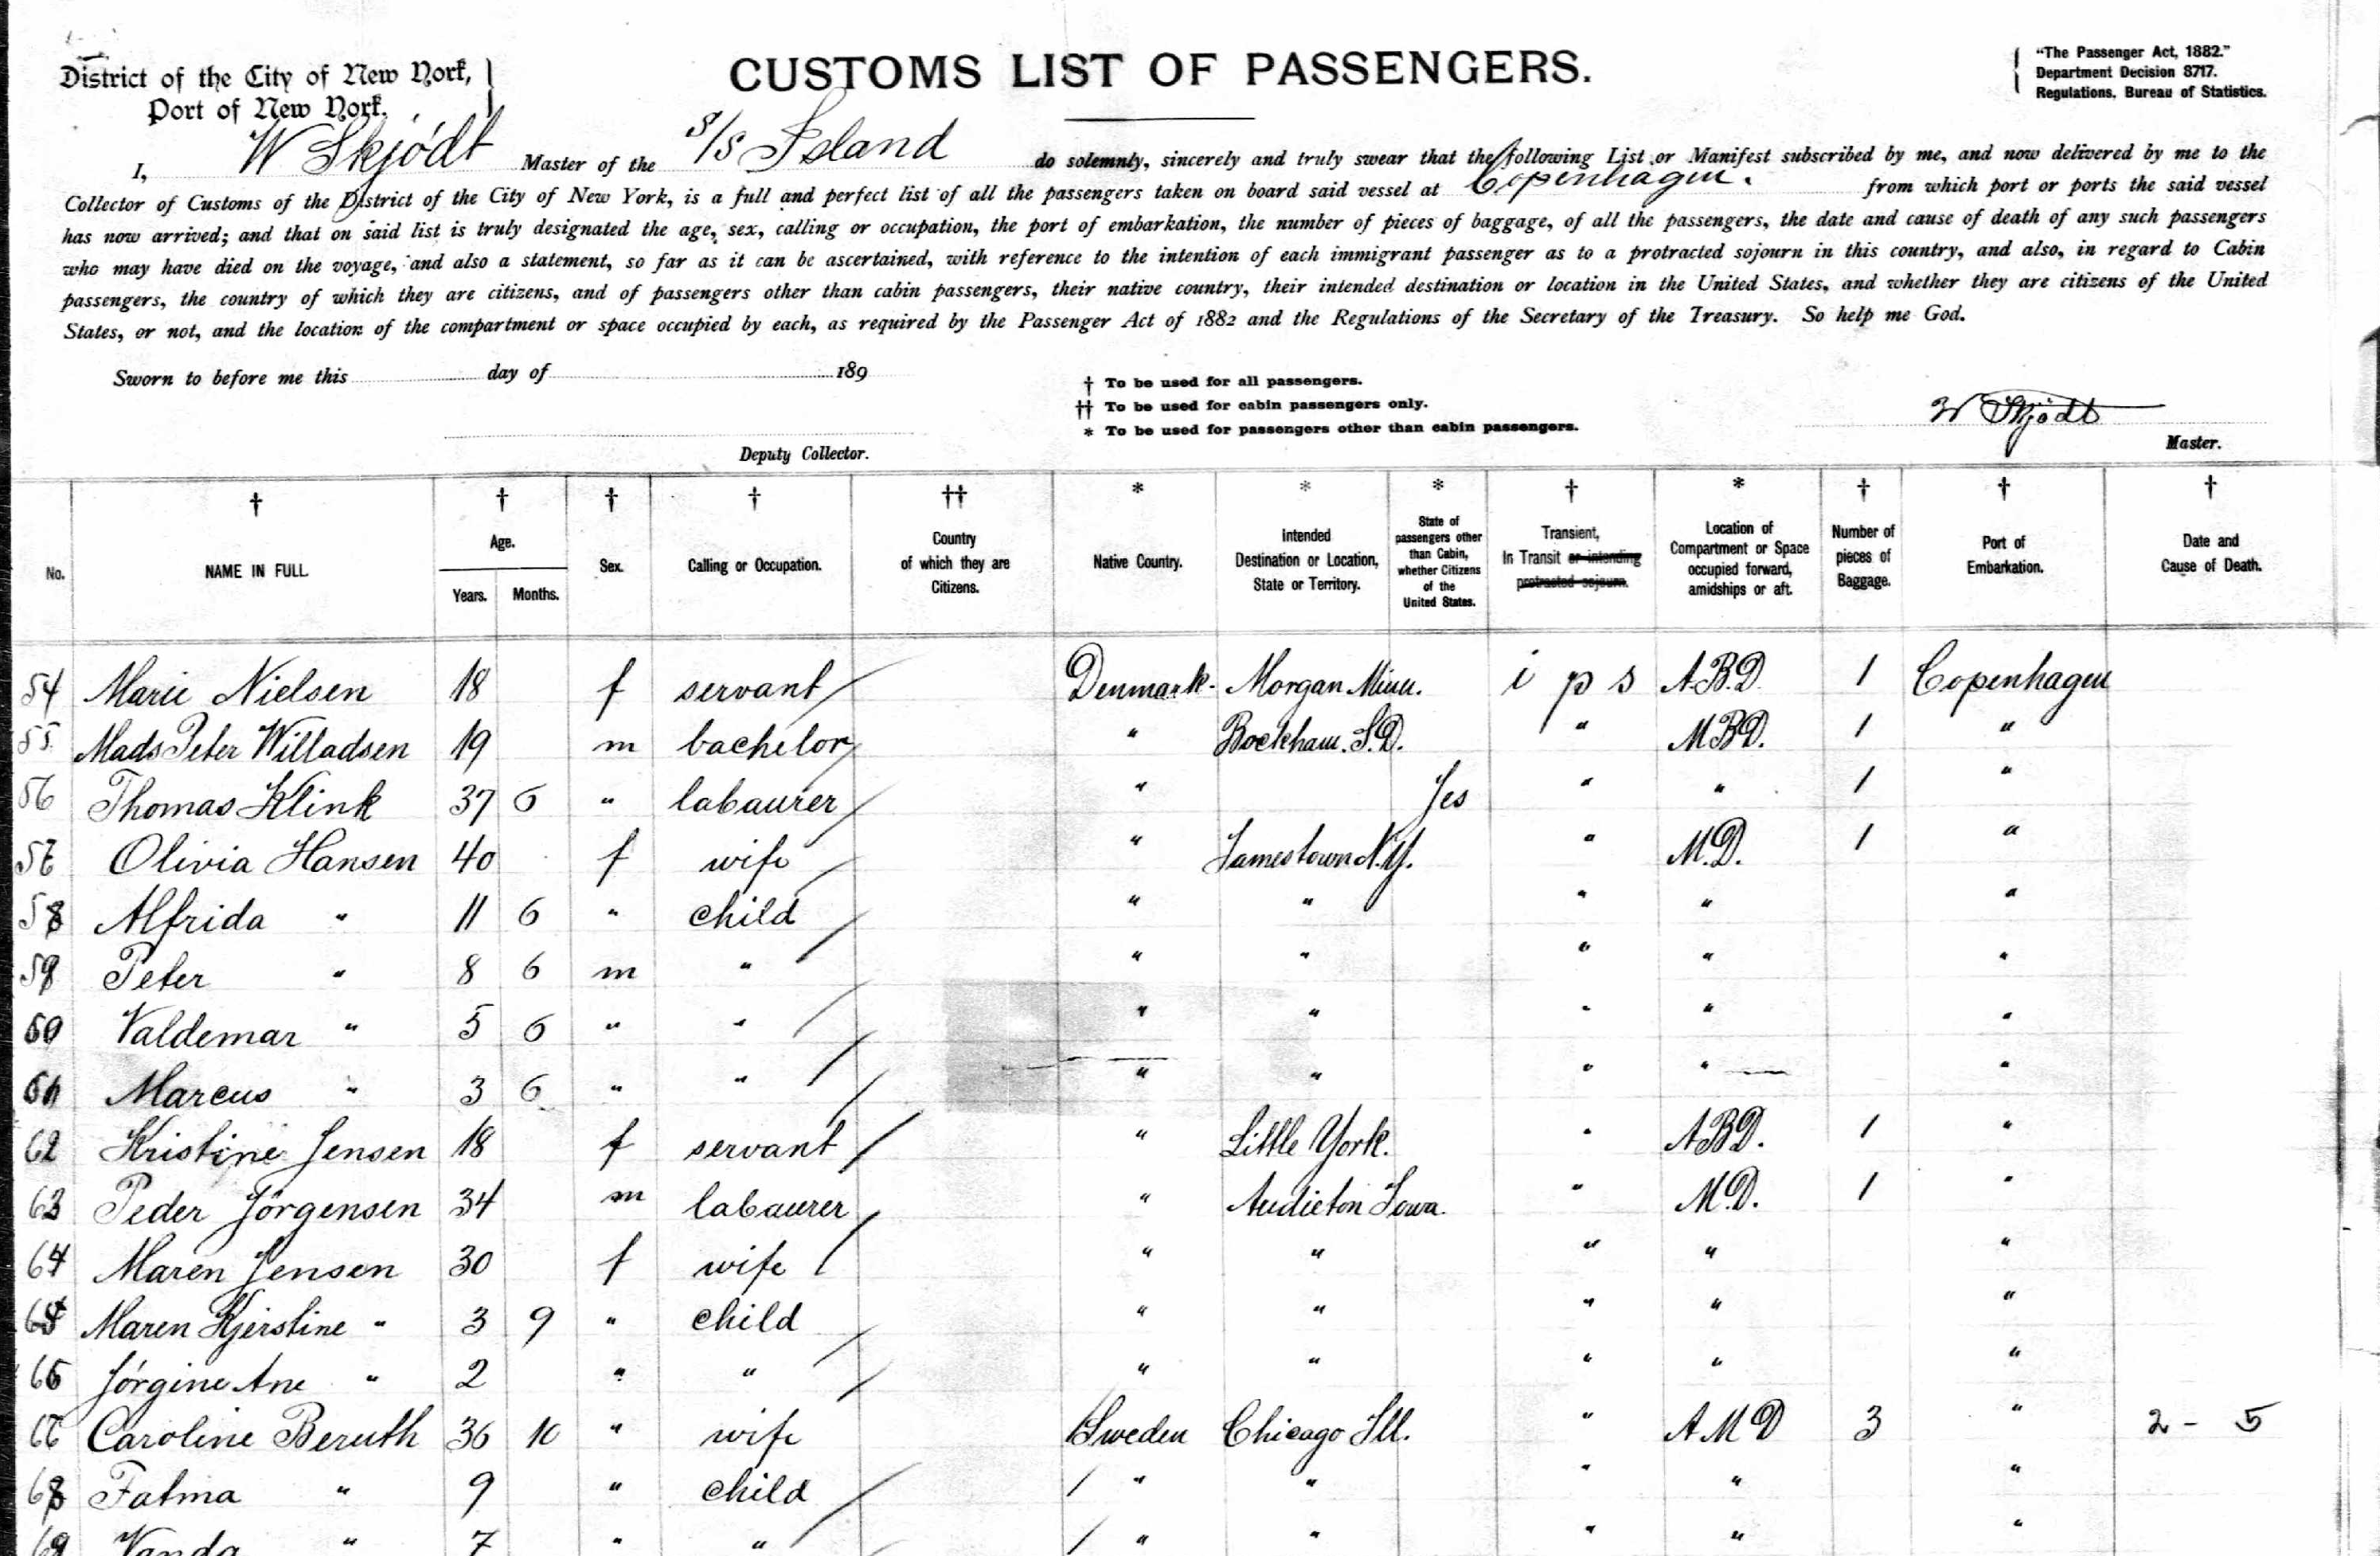 District of the City of New York,
Port of New York.
CUSTOMS LIST OF PASSENGERS.
"The Passenger Act, 1882."
Department Decision 8717.
Regulations, Bureau of Statistics.
I, W Skjödt Master of the S/S Island do solemnly, sincerely and truly swear that the following List or Manifest subscribed by me, and now delivered by me to the
Collector of Customs of the District of the City of New York, is a full and perfect list of all the passengers taken on board said vessel at Copenhagen. from which port or ports the said vessel
has now arrived; and that on said list is truly designated the age, sex, calling or occupation, the port of embarkation, the number of pieces of baggage, of all the passengers, the date and cause of death of any such passengers
who may have died on the voyage, and also a statement, so far as it can be ascertained, with reference to the intention of each immigrant passenger as to a protracted sojourn in this country, and also, in regard to Cabin
passengers, the country of which they are citizens, and of passengers other than cabin passengers, their native country, their intended destination or location in the United States, and whether they are citizens of the United
States, or not, and the location of the compartment or space occupied by each, as required by the Passenger Act of 1882 and the Regulations of the Secretary of the Treasury. So help me God.
Sworn to before me this day of 189
† To be used for all passengers.
†† To be used for cabin passengers only.
* To be used for passengers other than cabin passengers.
W Skjödt
Deputy Collector.
Master.
No. † NAME IN FULL † Age. Years. Months. † Sex. † Calling or Occupation. †† Country of which they are Citizens. * Native Country. * Intended Destination or Location, State or Territory. * State of passengers other than Cabin, whether Citizens of the United States. † Transient, In Transit or intending protracted sojourn. * Location of Compartment or Space occupied forward, amidships or aft. † Number of pieces of Baggage. † Port of Embarkation. † Date and Cause of Death.
54 Marie Nielsen 18 f servant Denmark- Morgan Minn. i p s A.B.D. 1 Copenhagen
55 Mads Peter Willadsen 19 m bachelor " S.D. " M.B.D. 1 "
56 Thomas Klink 37 6 " labaurer " Yes " " 1 "
57 Olivia Hansen 40 f wife " Jamestown N.Y. " M.D. 1 "
58 Alfrida " 11 6 " child " " " " "
59 Peter " 8 6 m " " " " " "
60 Valdemar " 5 6 " " " " " " "
61 Marcus " 3 6 " " " " " " "
62 Kristine Jensen 18 f servant " Little York. " A.B.D. 1 "
63 Peder Jörgensen 34 m labaurer " Iowa. " M.D. 1 "
64 Maren Jensen 30 f wife " " " " "
65 Maren Kjerstine " 3 9 " child " " " " "
66 Jörgine Ane " 2 " " " " " " "
67 Caroline Beruth 36 10 " wife Sweden Chicago Ill. " A M D 3 " 2 - 5
68 Fatma " 9 " child " " " " "
69 Vanda " 7 " " " " " " "